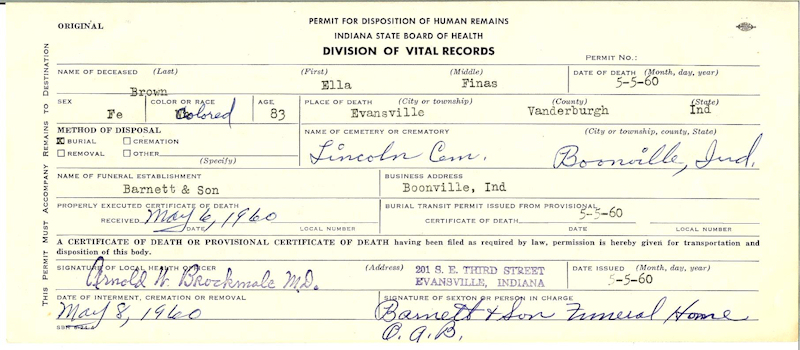 ORIGINAL
PERMIT FOR DISPOSITION OF HUMAN REMAINS
INDIANA STATE BOARD OF HEALTH
DIVISION OF VITAL RECORDS
PERMIT NO.:
THIS PERMIT MUST ACCOMPANY REMAINS TO DESTINATION
NAME OF DECEASED (Last) (First) (Middle) DATE OF DEATH (Month, day, year)
Brown Ella Finas 5-5-60
SEX COLOR OR RACE AGE PLACE OF DEATH (City or township) (County) (State)
Fe Colored 83 Evansville Vanderburgh Ind
METHOD OF DISPOSAL NAME OF CEMETERY OR CREMATORY (City or township, county, State)
X BURIAL CREMATION
REMOVAL OTHER
(Specify)
Lincoln Cem. Boonville, Ind.
NAME OF FUNERAL ESTABLISHMENT BUSINESS ADDRESS
Barnett & Son Boonville, Ind
PROPERLY EXECUTED CERTIFICATE OF DEATH BURIAL TRANSIT PERMIT ISSUED FROM PROVISIONAL
RECEIVED May 6, 1960 CERTIFICATE OF DEATH 5-5-60
DATE LOCAL NUMBER DATE LOCAL NUMBER
A CERTIFICATE OF DEATH OR PROVISIONAL CERTIFICATE OF DEATH having been filed as required by law, permission is hereby given for transportation and
disposition of this body.
SIGNATURE OF LOCAL HEALTH OFFICER (Address) 201 S. E. THIRD STREET DATE ISSUED (Month, day, year)
Arnold W. Brockmole M.D. EVANSVILLE, INDIANA 5-5-60
DATE OF INTERMENT, CREMATION OR REMOVAL SIGNATURE OF SEXTON OR PERSON IN CHARGE
May 8, 1960 Barnett & Son Funeral Home
O.A.B.